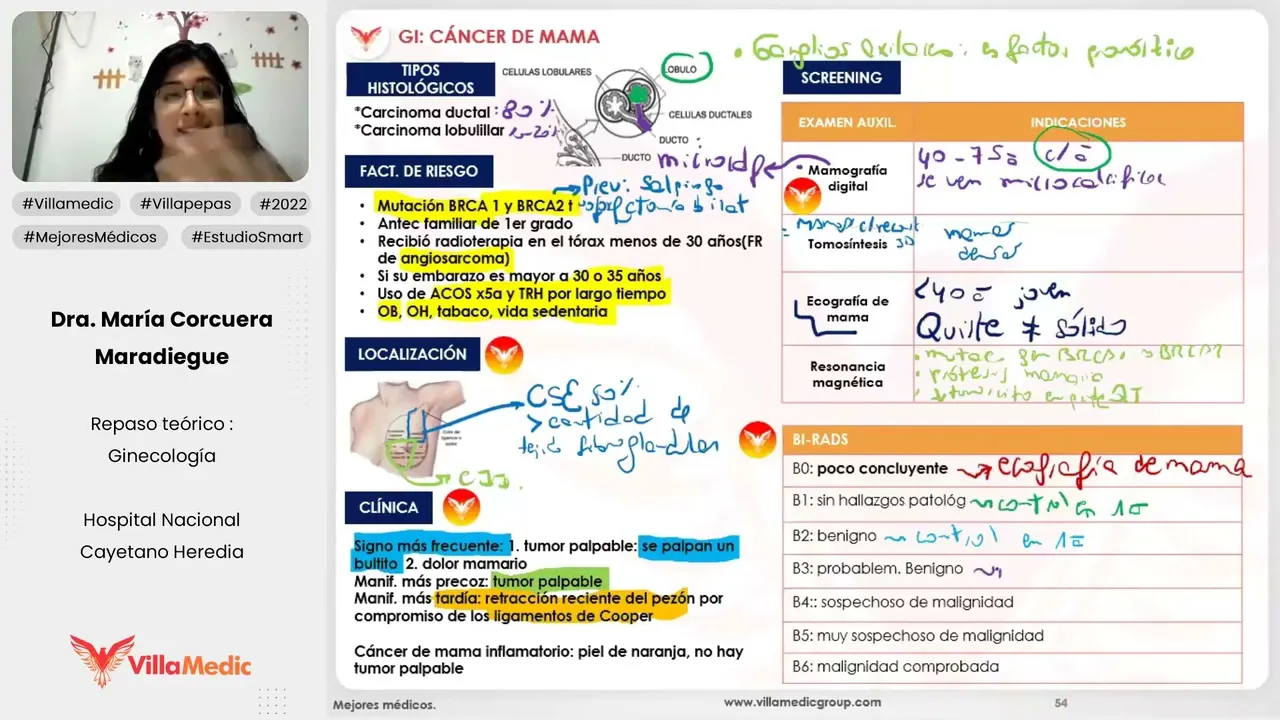 #Villamedic #Villapepas #2022
#MejoresMédicos #EstudioSmart
Dra. María Corcuera
Maradiegue
Repaso teórico :
Ginecología
Hospital Nacional
Cayetano Heredia
VillaMedic
GI: CÁNCER DE MAMA
TIPOS
HISTOLÓGICOS
*Carcinoma ductal : 80%
*Carcinoma lobulillar
CELULAS LOBULARES
LOBULO
CELULAS DUCTALES
DUCTO
DUCTO
FACT. DE RIESGO
Mutación BRCA 1 y BRCA2 t
Antec familiar de 1er grado
Recibió radioterapia en el tórax menos de 30 años(FR
de angiosarcoma)
Si su embarazo es mayor a 30 o 35 años
Uso de ACOS x5a y TRH por largo tiempo
OB, OH, tabaco, vida sedentaria
Prev: Salpingo
LOCALIZACIÓN
CSE 50%
> cantidad de
CLÍNICA
Signo más frecuente: 1. tumor palpable: se palpan un
bultito 2. dolor mamario
Manif. más precoz: tumor palpable
Manif. más tardía: retracción reciente del pezón por
compromiso de los ligamentos de Cooper
Cáncer de mama inflamatorio: piel de naranja, no hay
tumor palpable
Mejores médicos.
SCREENING
EXAMEN AUXIL. INDICACIONES
Mamografía
digital
40 - 75a c/a
se ven
Tomosíntesis
mamas
densas
Ecografía de
mama
<40a joven
Quiste ≠ sólido
Resonancia
magnética
BI-RADS
B0: poco concluyente → ecografía de mama
B1: sin hallazgos patológ control en 1a
B2: benigno control en 1a
B3: problem. Benigno
B4:: sospechoso de malignidad
B5: muy sospechoso de malignidad
B6: malignidad comprobada
www.villamedicgroup.com
54